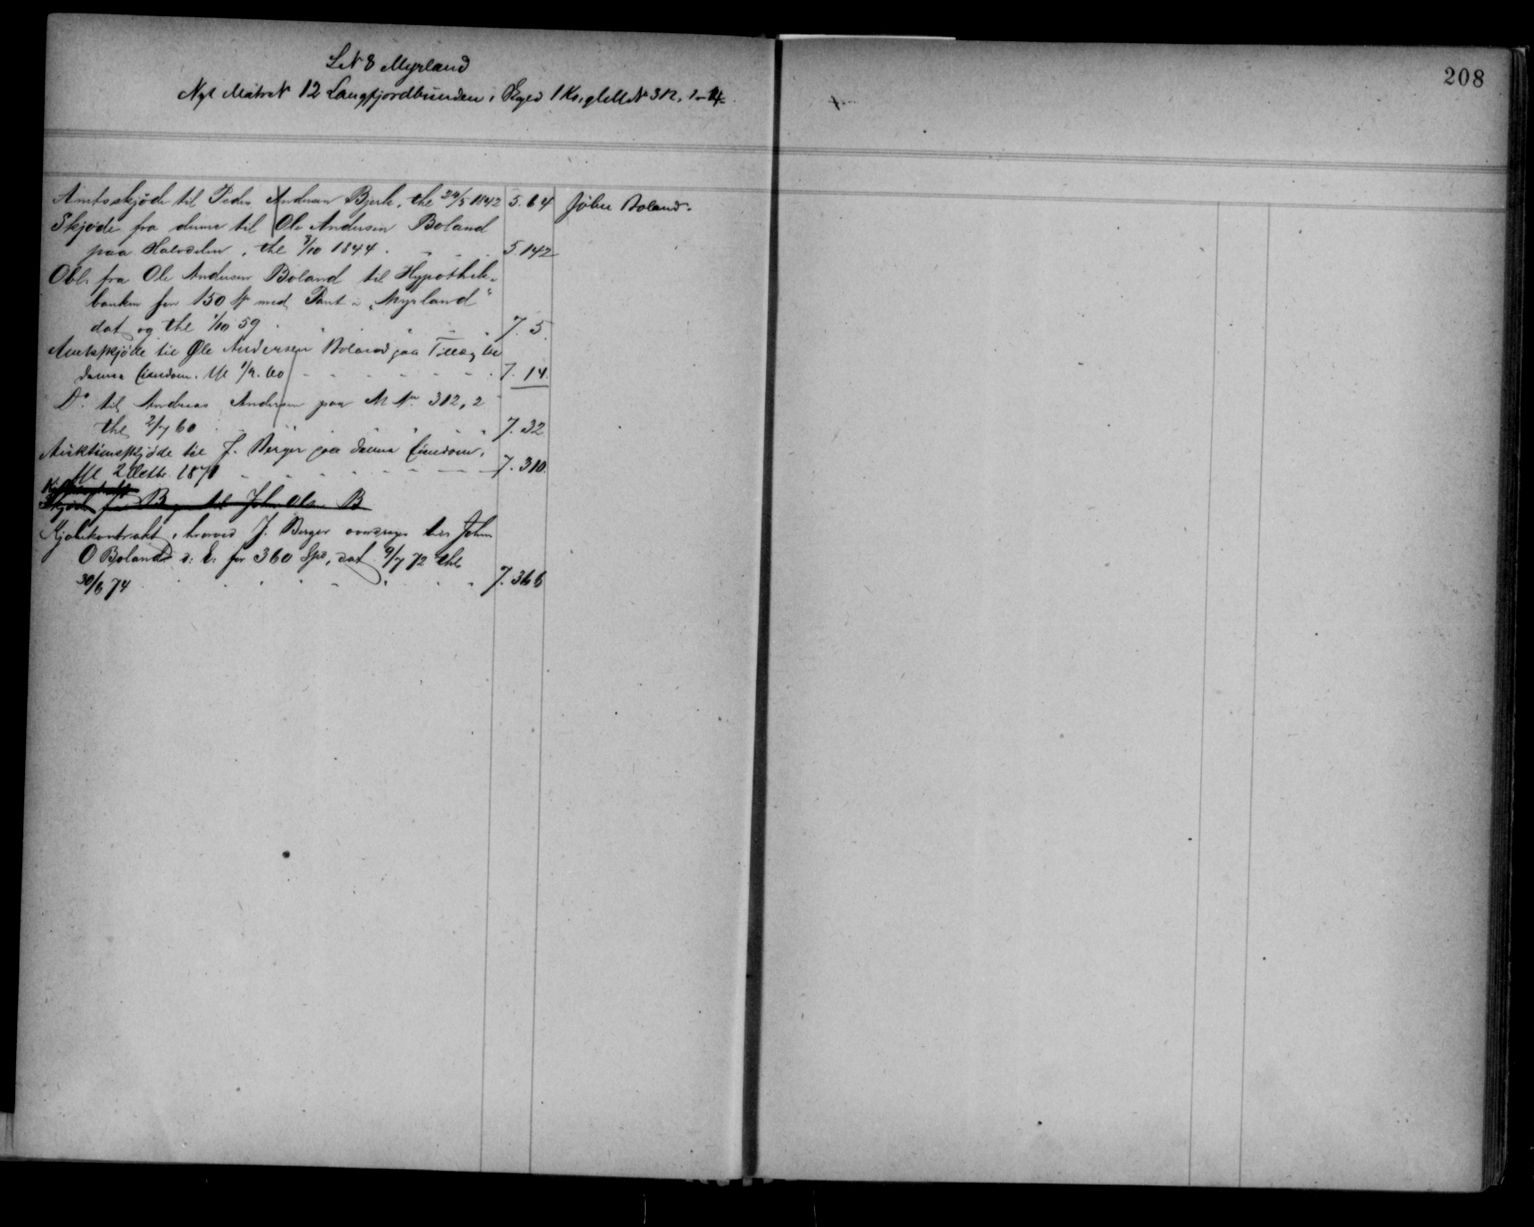 208
LN 8 Myrland
Nyt Matr N 12 Langfjordbunden, Skyld 1 Ko, gl M N 312, 1-4
Amtsskjøde til Peder Andersen Bjerk, thl 24/5 1842 5.64 John Boland.
Skjøde fra denne til Ole Andersen Boland
paa Halvdelen, thl 3/10 1844. 5 142
Obl. fra Ole Andersen Boland til Hypothek-
banken for 150 Sp med Pant i "Myrland"
dat og thl 1/10 59 7. 5.
Amtsskjøde til Ole Andersen Boland paa Tillæg til
denne Eiendom. thl 1/9. 60 7. 14
Do til Andreas Andersen paa M No 312, 2
thl 2/7 60 7. 32
Auktionsskjøde til J. Berger paa denne Eiendom,
thl 2 Octbr. 1871 7. 310.
Skjøde fra B til Joh. Olsen B
Kjøbekontrakt, hvorved J. Berger overdrager til John
O Boland d. E. for 360 Spd, dat 9/7 72 thl
30/6 74 7. 366